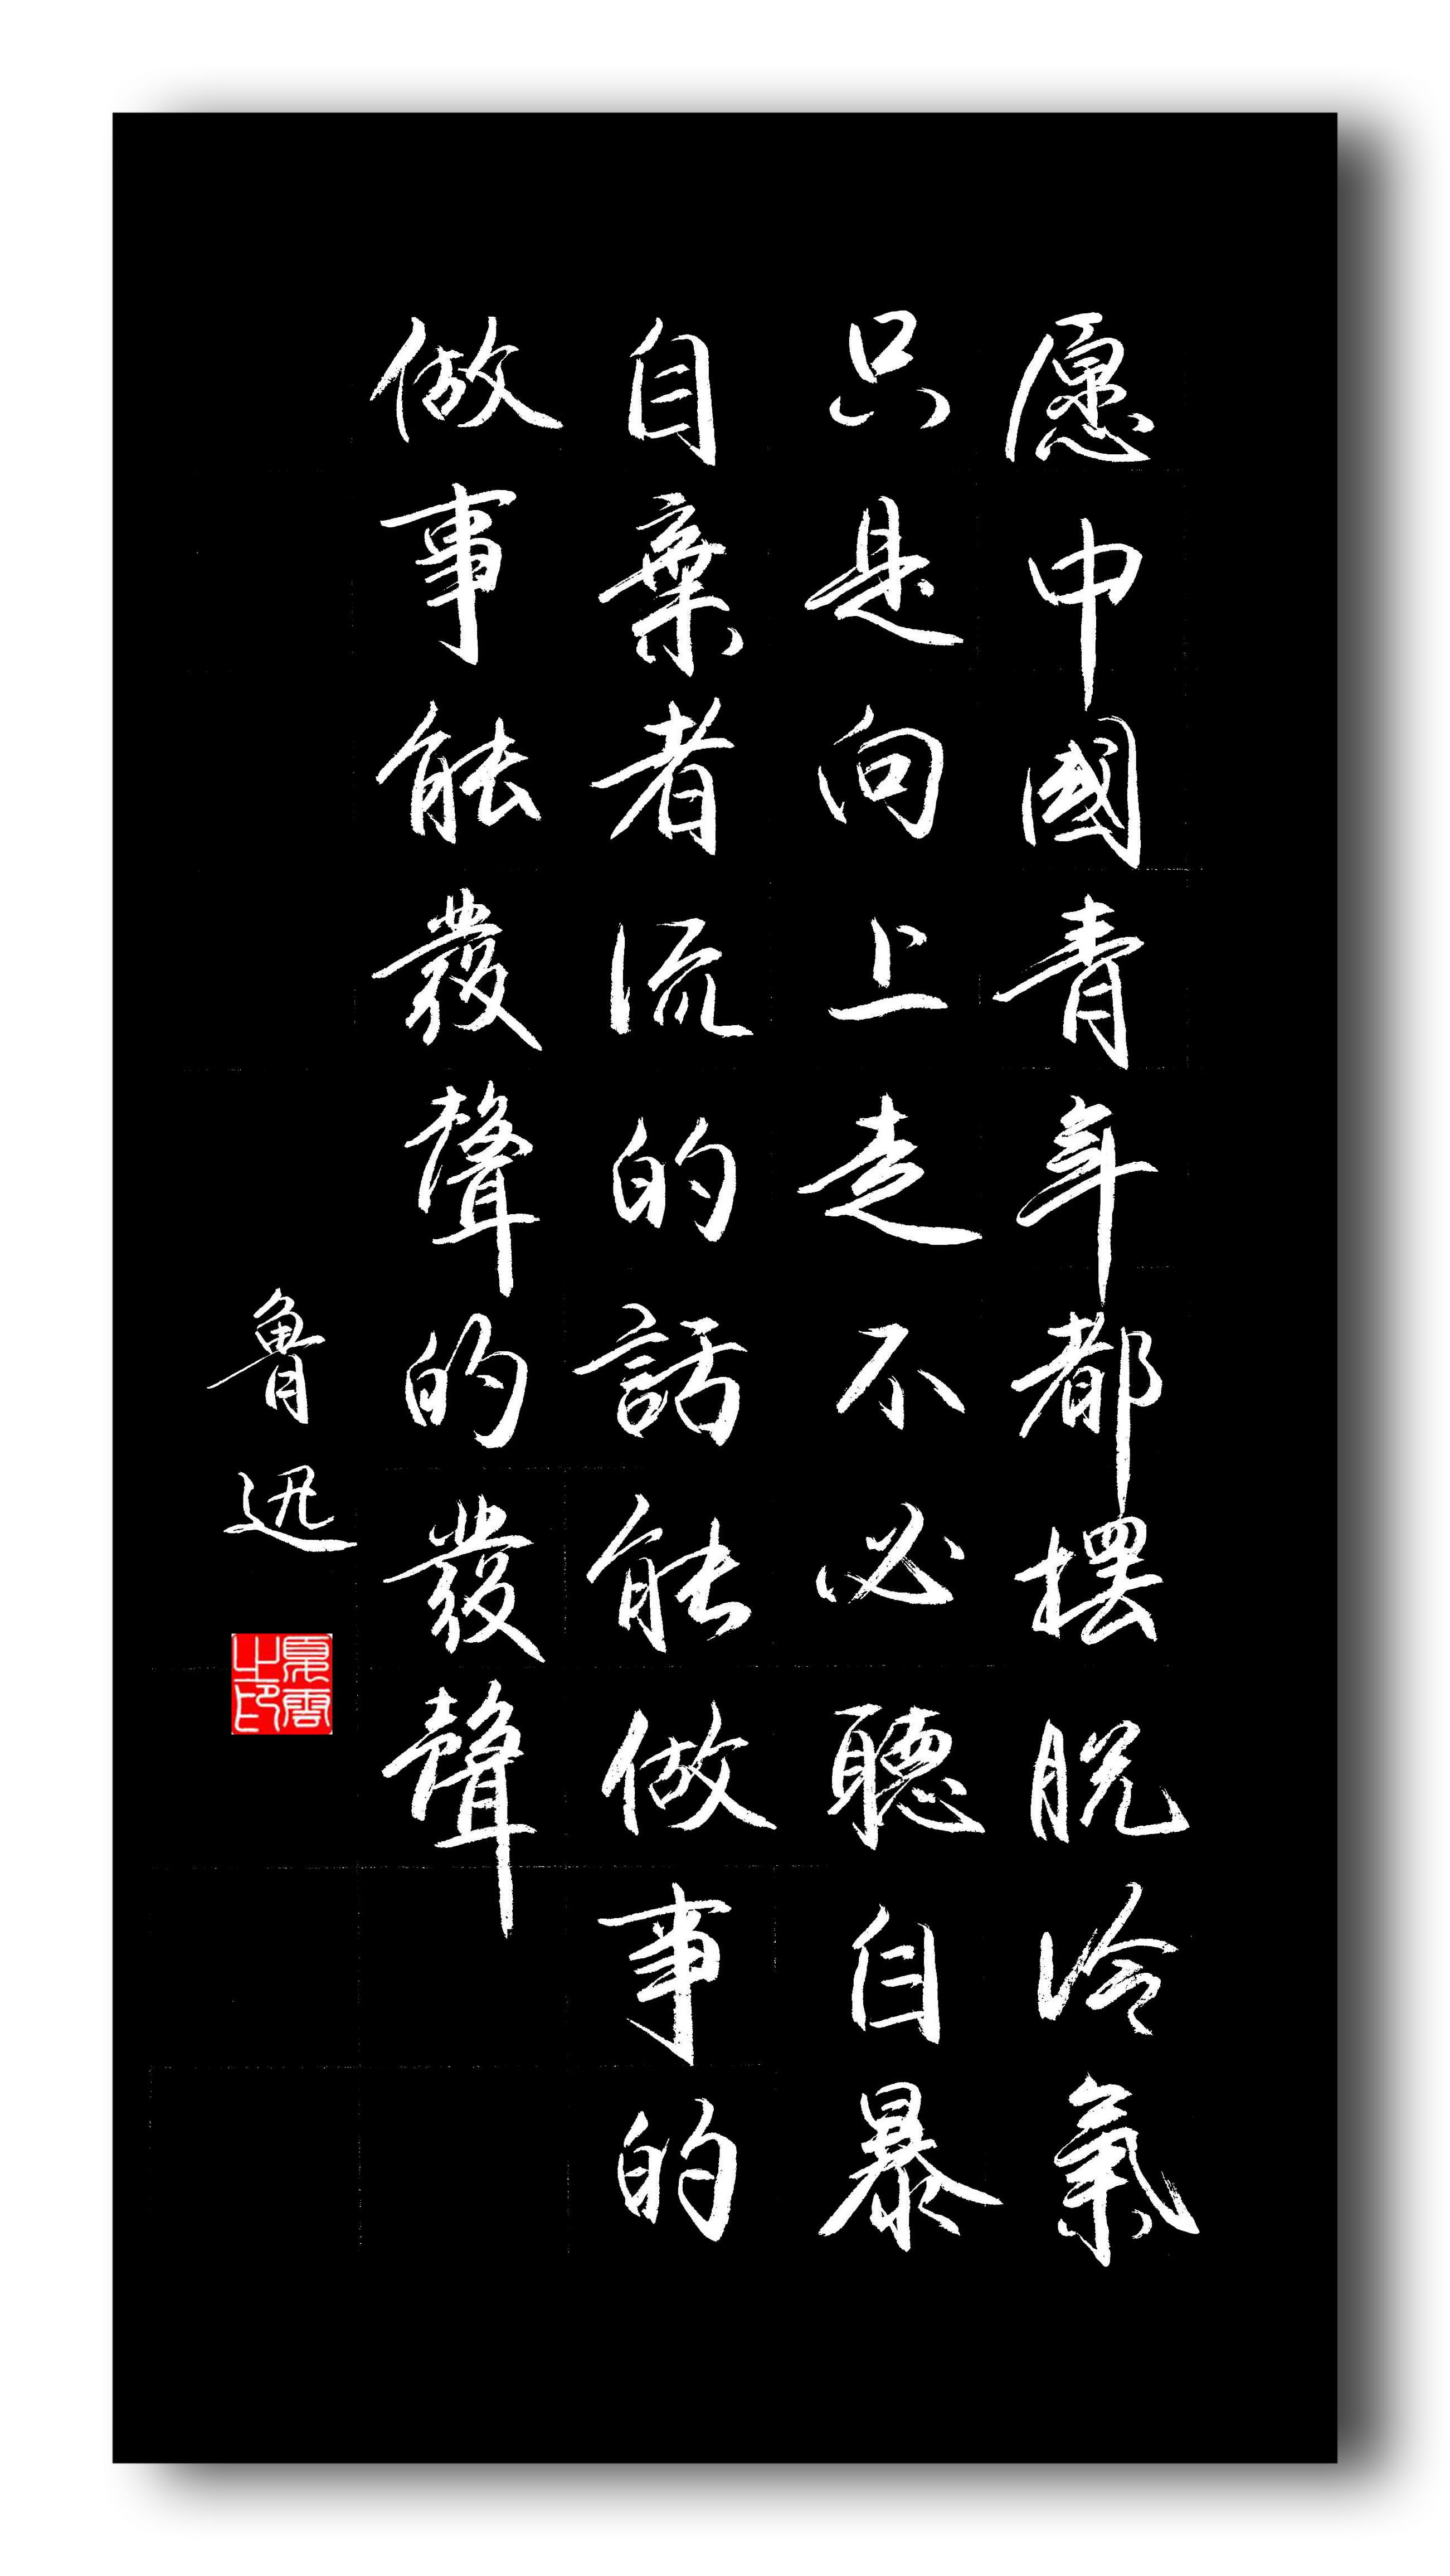 愿中國青年都摆脱冷氣
只是向上走不必聽自暴
自棄者流的話能做事的
做事能發聲的發聲
魯迅